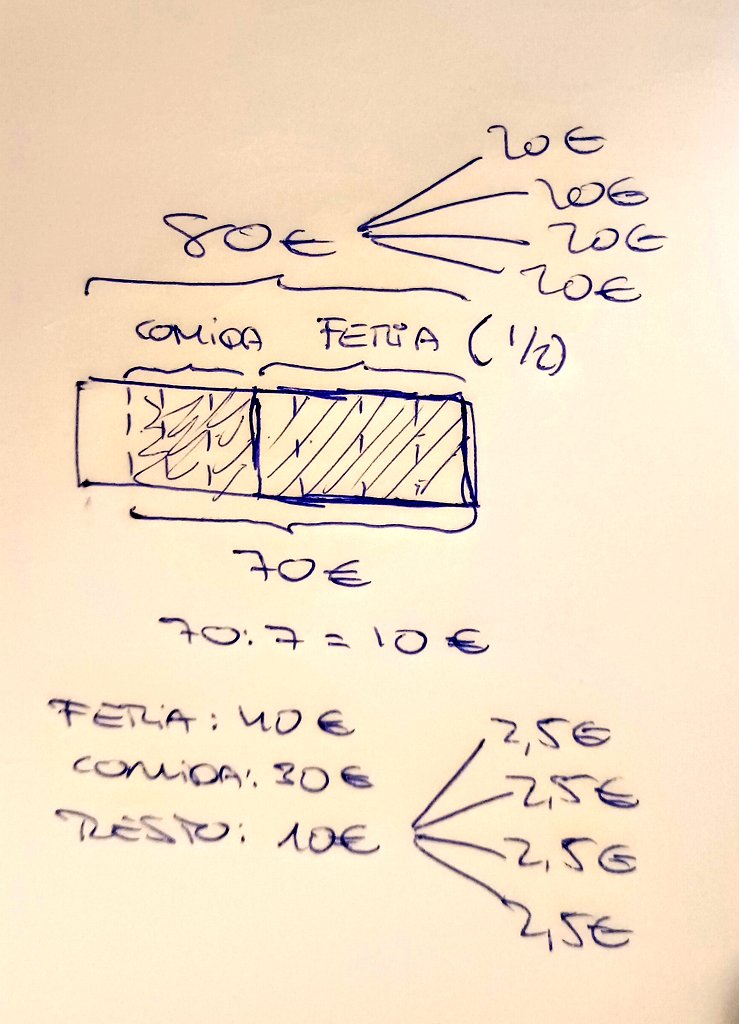 20€
20€
80€
20€
20€
COMIDA FERIA (1/2)
70€
70:7 = 10€
FERIA: 40€
2,5€
COMIDA: 30€
2,5€
RESTO: 10€
2,5€
2,5€